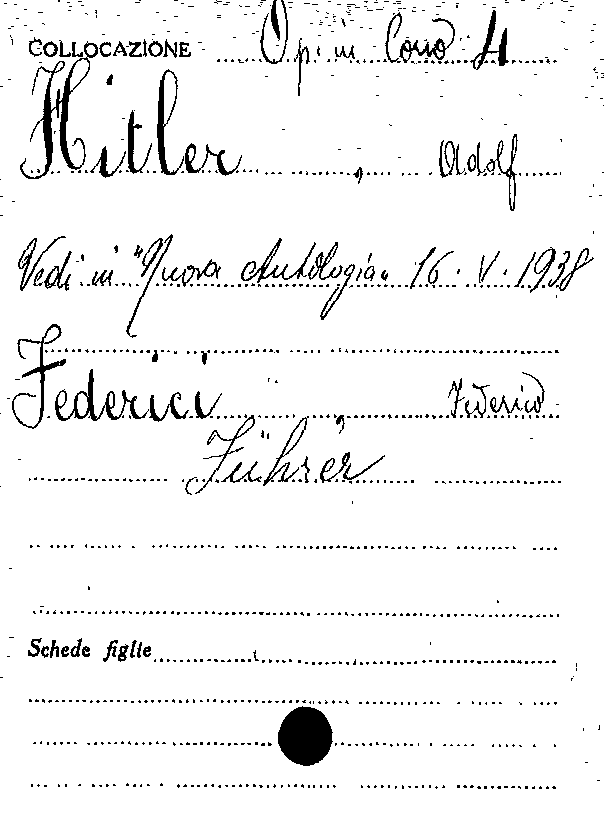 COLLOCAZIONE Op. in Corso 4
Hitler, Adolf
Vedi in "Nuova Antologia" 16.V.1938
Federici, Federico
Führer
Schede figlie